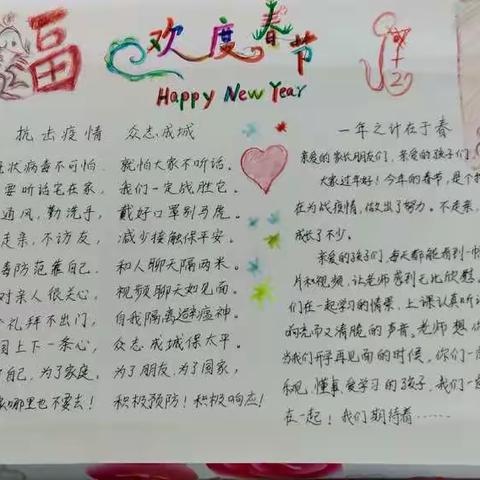 福 欢度春节
Happy New Year
抗击疫情 众志成城
状病毒不可怕. 就怕大家不听话。
要听话宅在家, 我们一定战胜它。
通风,勤洗手, 戴好口罩别马虎。
走亲,不访友, 减少接触保平安。
毒防范靠自己. 和人聊天隔两米。
对亲人很关心, 视频聊天如见面。
礼拜不出门, 自我隔离避瘟神。
国上下一条心, 众志成城保太平。
自己,为了家庭。 为了朋友,为了国家,
哪里也不要去! 积极预防!积极响应!
一年之计在于春
亲爱的家长朋友们,亲爱的孩子们。
大家过年好!今年的春节,是个
在为战疫情,做出了努力。不走亲,
成长了不少。
亲爱的孩子们,每天都能看到一
片和视频,让老师感到无比欣慰。
们在一起学习的情景,上课认真听
响亮而又清脆的声音。老师想你
当我们开学再见面的时候,你们一
乐观,懂事,爱学习的孩子,我们一
在一起!我们期待着……